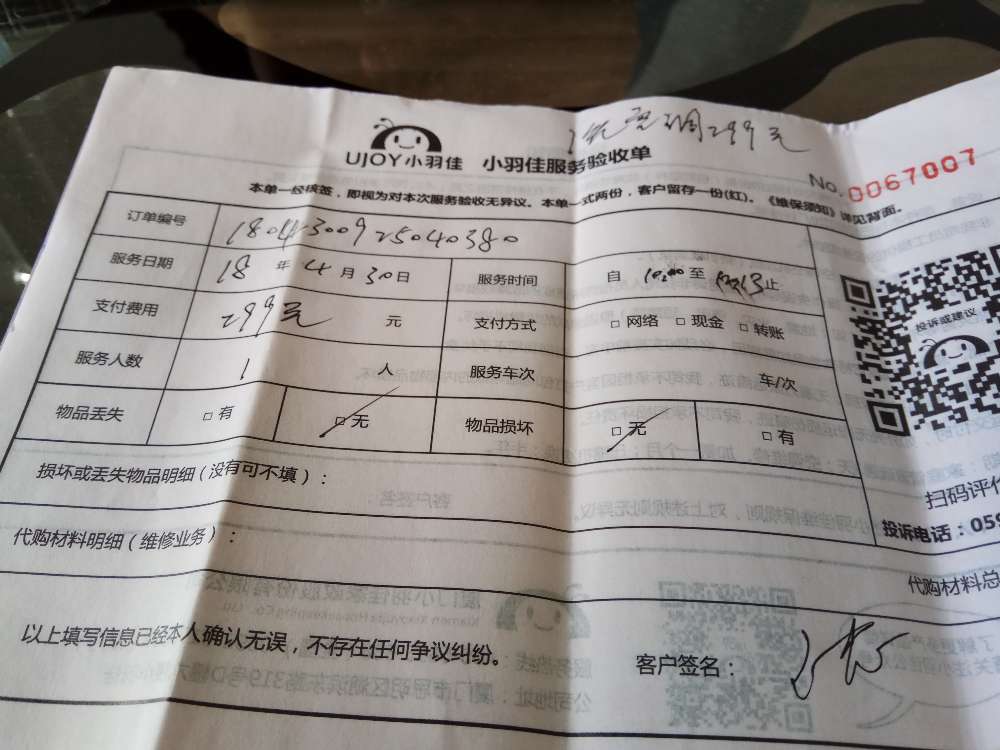 299元
UJOY小羽佳 小羽佳服务验收单
No. 0067007
本单一经核签，即视为对本次服务验收无异议。本单一式两份，客户留存一份(红)。《维保须知》详见背面。
订单编号 1804300925040380
服务日期 18 年 4 月 30 日 服务时间 自 10:00 至 止
支付费用 299元 元 支付方式 □ 网络 □ 现金 □ 转账
投诉或建议
服务人数 1 人 服务车次 车/次
物品丢失 □ 有 □ 无 物品损坏 □ 无 □ 有
损坏或丢失物品明细（没有可不填）：
扫码评价
投诉电话：059
代购材料明细（维修业务）：
代购材料总
以上填写信息已经本人确认无误，不存在任何争议纠纷。
客户签名：